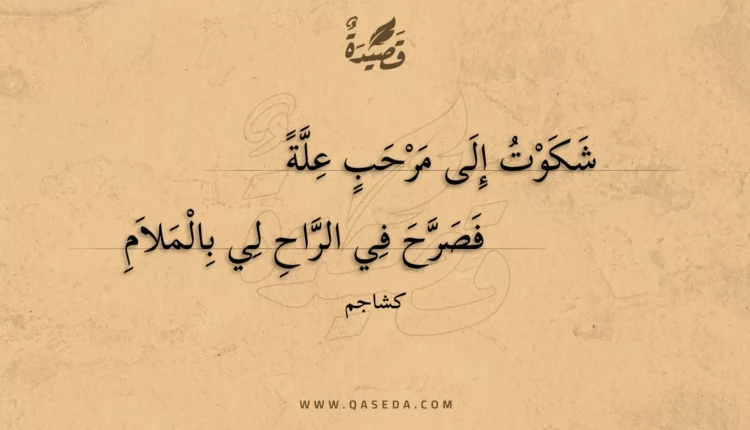 قَصِيدَةٌ
شَكَوْتُ إِلَى مَرْحَبٍ عِلَّةً
فَصَرَّحَ فِي الرَّاحِ لِي بِالْمَلاَمِ
كشاجم
WWW.QASEDA.COM